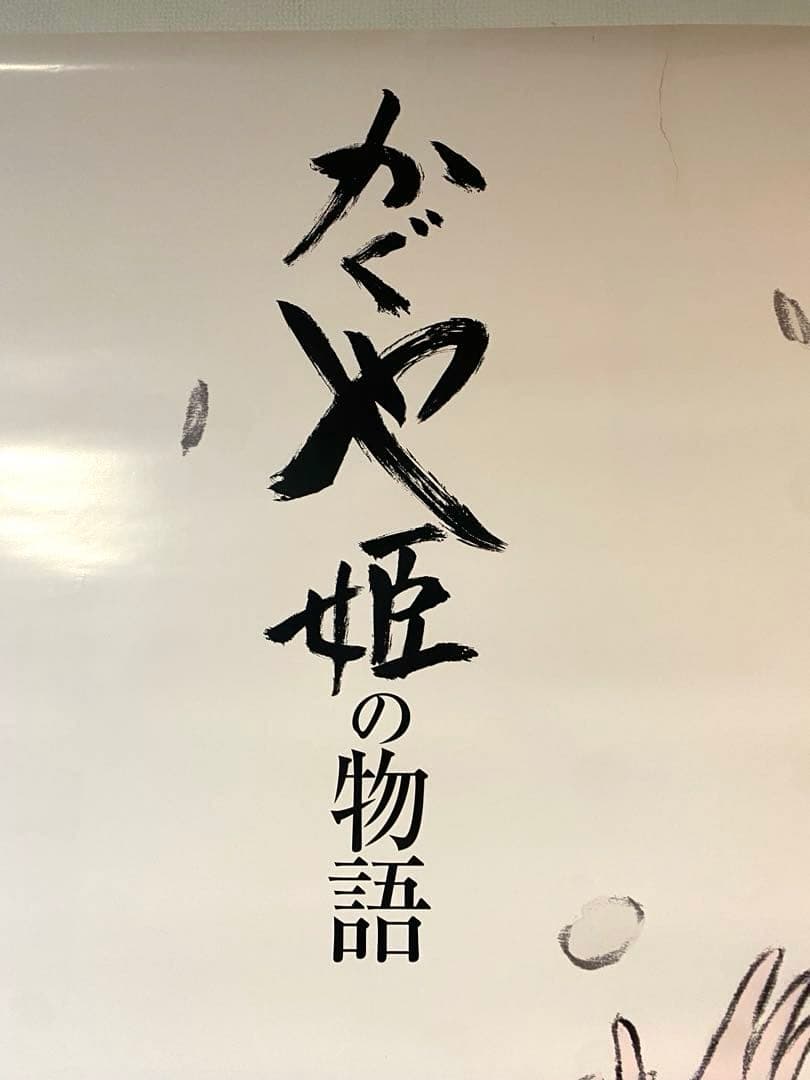 かぐや姫の物語